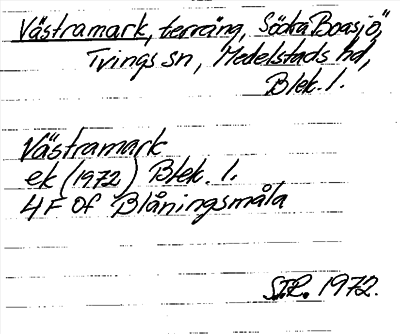 Västramark, terräng, Södra Boasjö,
Tvings sn, Medelstads hd,
Blek. l.
Västramark
ek (1972) Blek. l.
4F Of Blåningsmåla
1972.